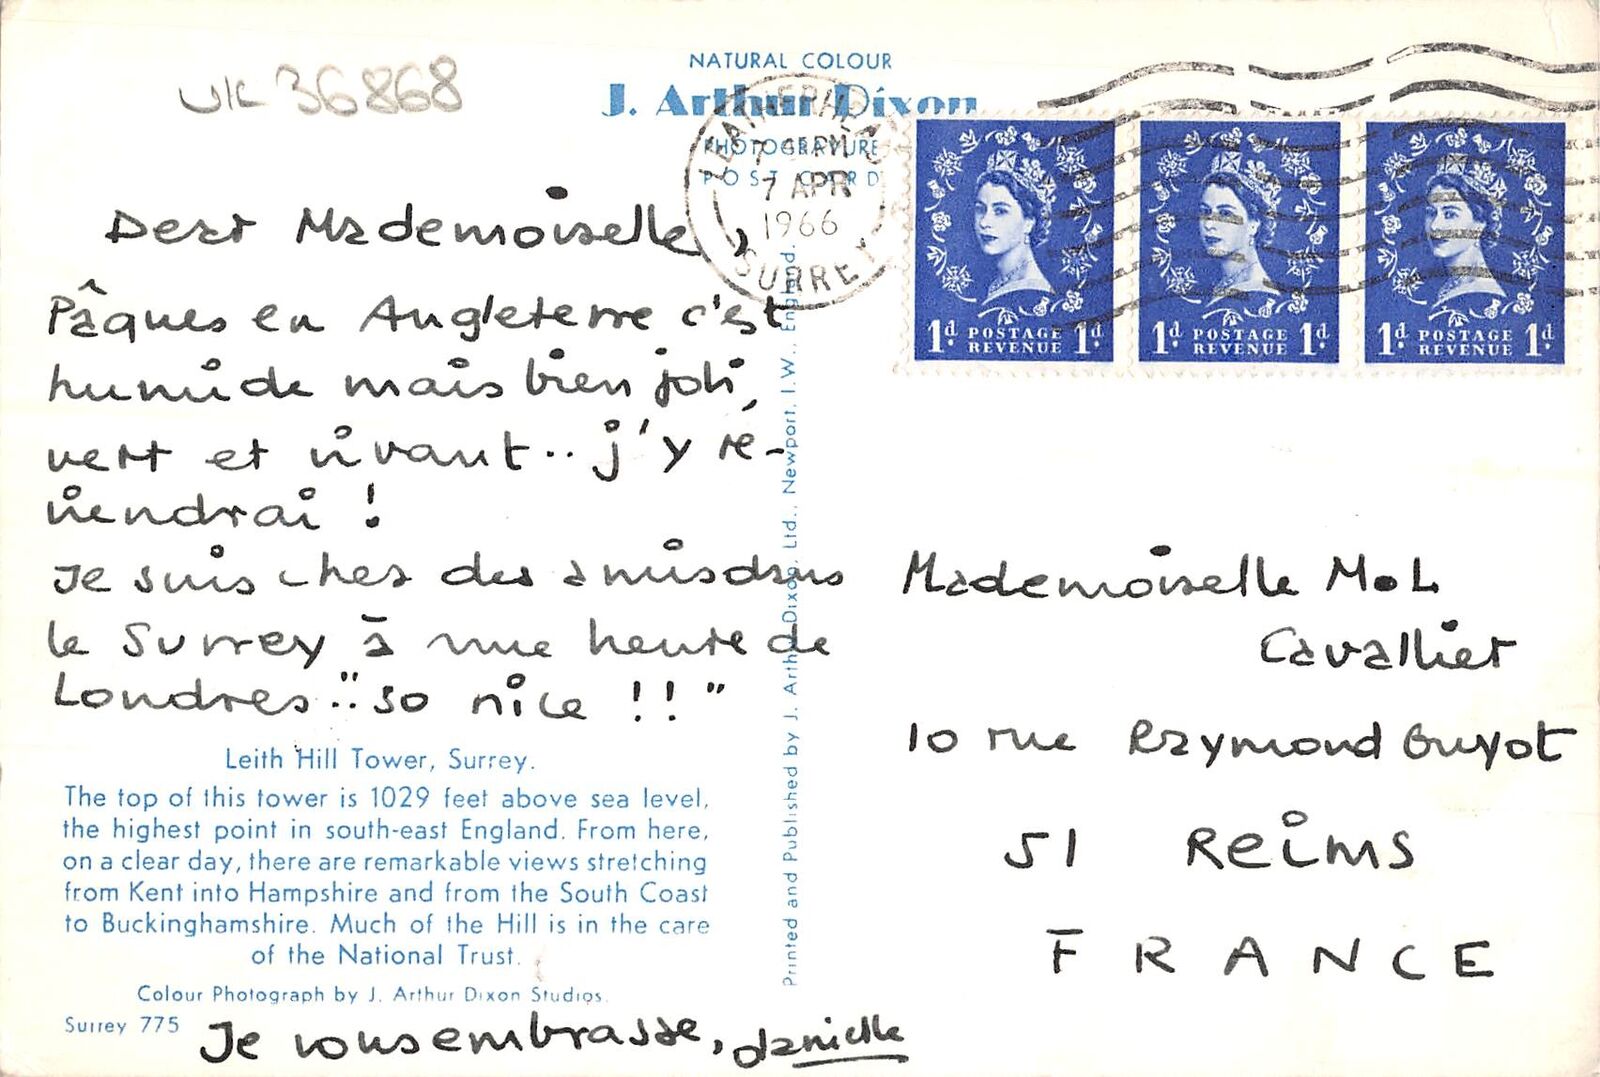 UK 36868
NATURAL COLOUR
J. Arthur Dixon
PHOTOGRAVURE
POST CARD
LEATHERHEAD
7 APR
1966
SURREY
1d POSTAGE REVENUE 1d
1d POSTAGE REVENUE 1d
1d POSTAGE REVENUE 1d
Dear Mademoiselle,
Pâques en Angleterre c'est
humide mais bien joli,
vert et vivant.. j'y re-
viendrai !
Je suis chez des amis dans
le Surrey à une heure de
Londres.. "so nice !!"
Leith Hill Tower, Surrey.
The top of this tower is 1029 feet above sea level,
the highest point in south-east England. From here,
on a clear day, there are remarkable views stretching
from Kent into Hampshire and from the South Coast
to Buckinghamshire. Much of the Hill is in the care
of the National Trust.
Colour Photograph by J. Arthur Dixon Studios.
Surrey 775
Je vous embrasse, danielle
Printed and Published by J. Arthur Dixon, Ltd., Newport, I.W., England.
Mademoiselle M.L
Cavallier
10 rue Raymond Guyot
51 Reims
FRANCE